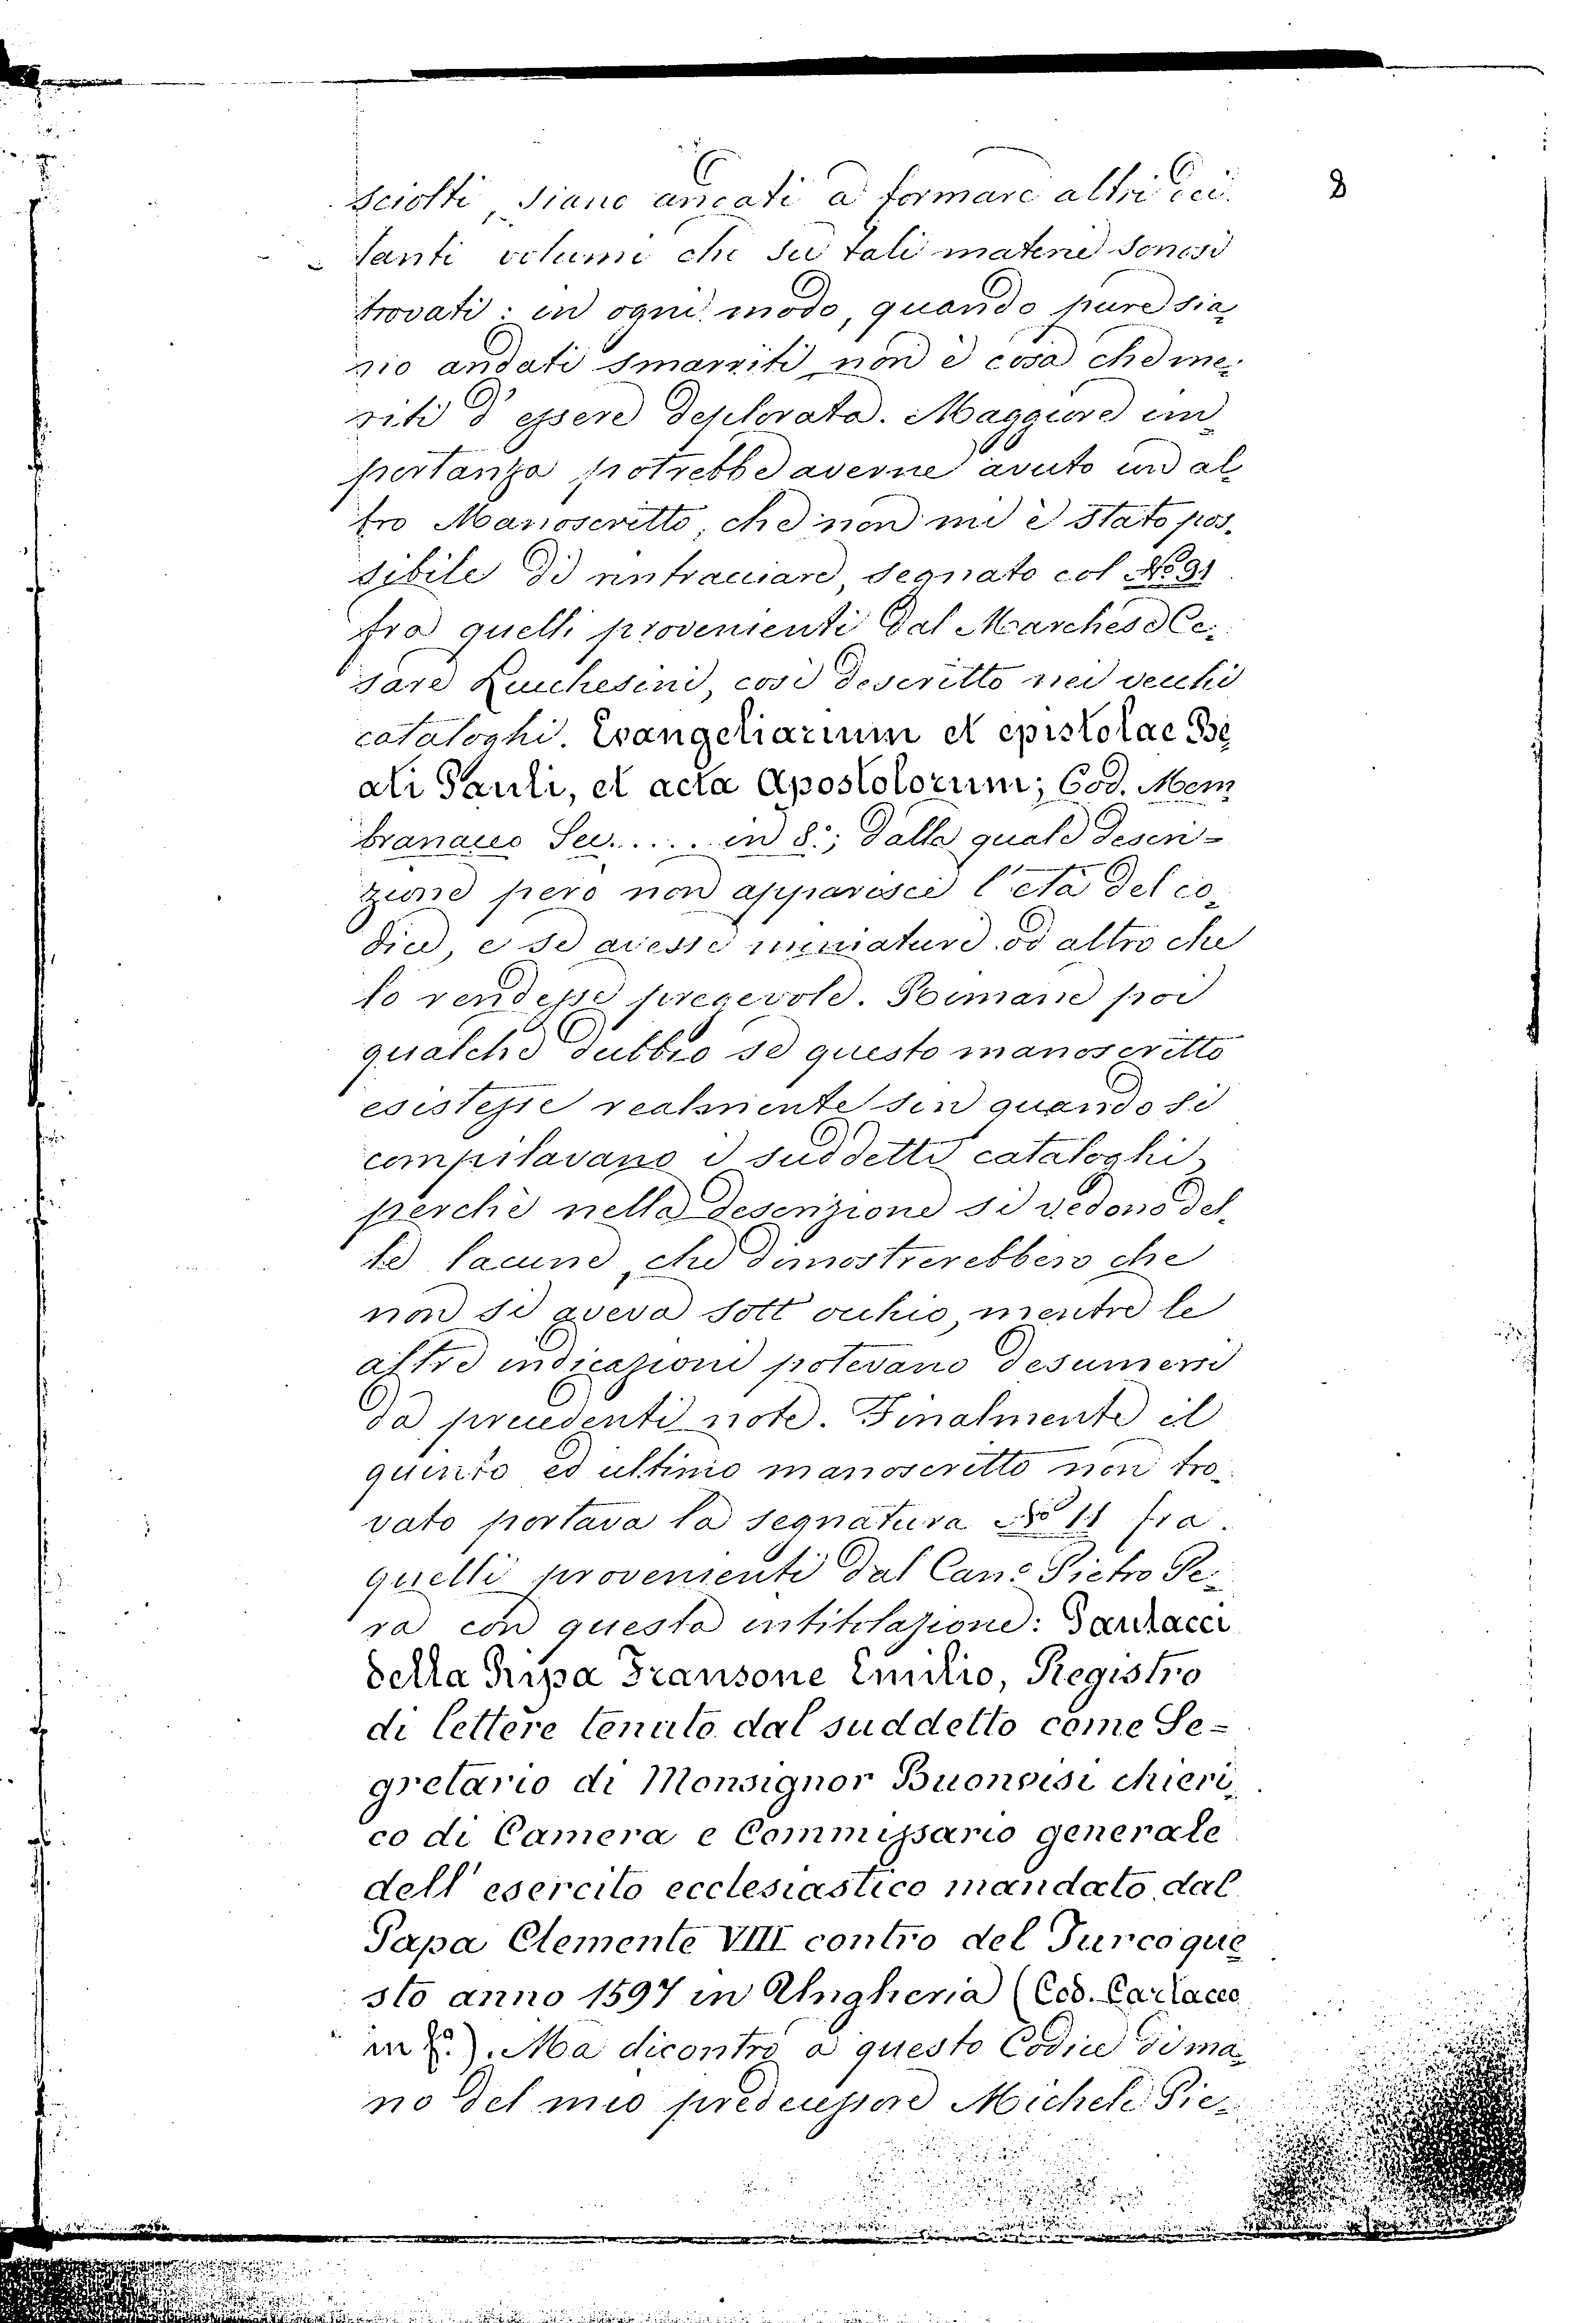 8
sciolti, siano andati a formare altri ec.
tanti volumi che su tali materie sonosi
trovati: in ogni modo, quando pure sia-
no andati smarriti non è cosa che me-
riti d'essere deplorata. Maggiore im-
portanza potrebbe averne avuto un al-
tro Manoscritto, che non mi è stato pos-
sibile di rintracciare, segnato col No 91
fra quelli provenienti dal Marchese Ce-
sare Lucchesini, così descritto nei vecchi
cataloghi. Evangeliarium et epistolae Be
ati Pauli, et acta Apostolorum; Cod. Mem
branaceo Sec..... in 8.°; dalla quale descri-
zione però non apparisce l'età del co-
dice, e se avesse miniature od altro che
lo rendesse pregevole. Rimane poi
qualche dubbio se questo manoscritto
esistesse realmente sin quando si
compilavano i suddetti cataloghi
perchè nella descrizione si vedono del-
le lacune, che dimostrerebbero che
non si aveva sott'occhio, mentre le
altre indicazioni potevano desumersi
da precedenti note. Finalmente il
quinto ed ultimo manoscritto non tro-
vato portava la segnatura No 11 fra
quelli provenienti dal Can.c Pietro Pe-
ra con questa intitolazione:
della Ripa Transone Emilio, Registro
di lettere tenuto dal suddetto come Se=
gretario di Monsignor Buonvisi chieri-
co di Camera e Commissario generale
dell'esercito ecclesiastico mandato dal
Papa Clemente VIII contro del Turco que
sto anno 1597 in Ungheria (Cod. Cartaceo
in f.°). Ma dicontro a questo Codice di ma-
no del mio predecessore Michele Pie-